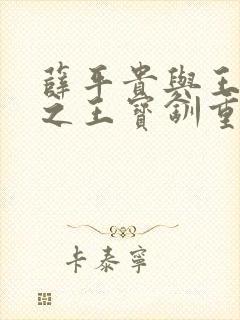 薛平貴與王
之王寶釧重
卡泰寧